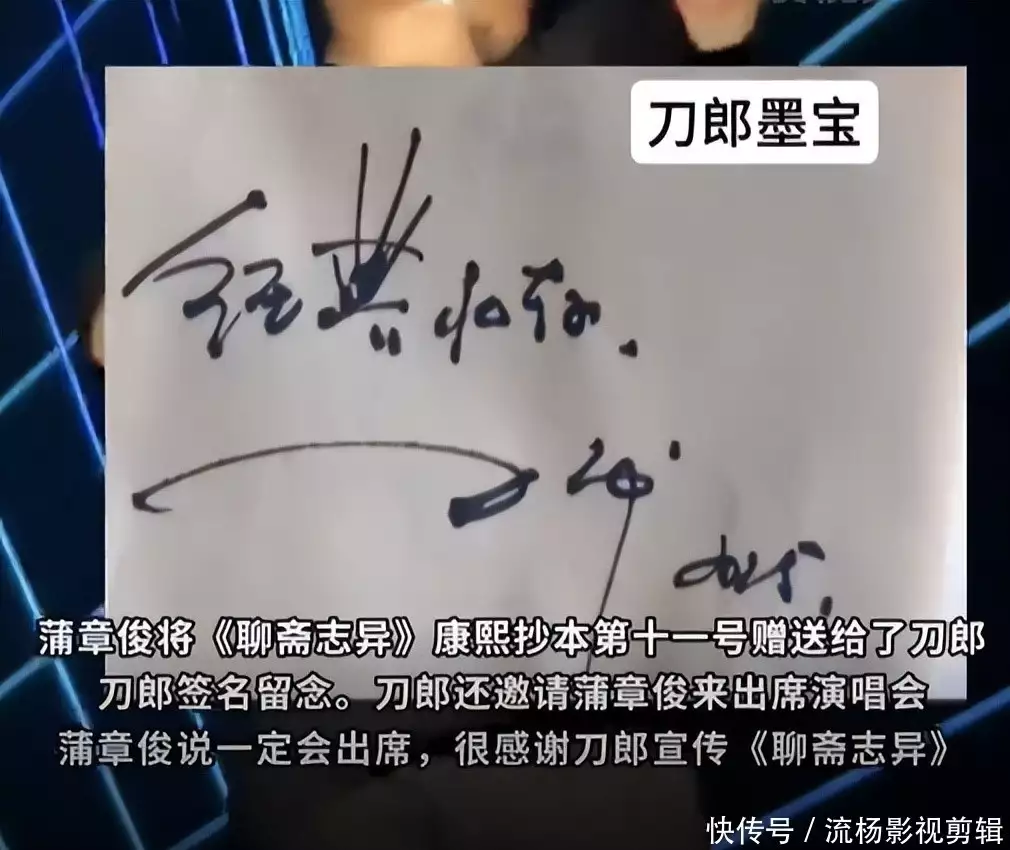 刀郎墨宝
经典
蒲章俊将《聊斋志异》康熙抄本第十一号赠送给了刀郎
刀郎签名留念。刀郎还邀请蒲章俊来出席演唱会
蒲章俊说一定会出席，很感谢刀郎宣传《聊斋志异》
快传号 / 流杨影视剪辑